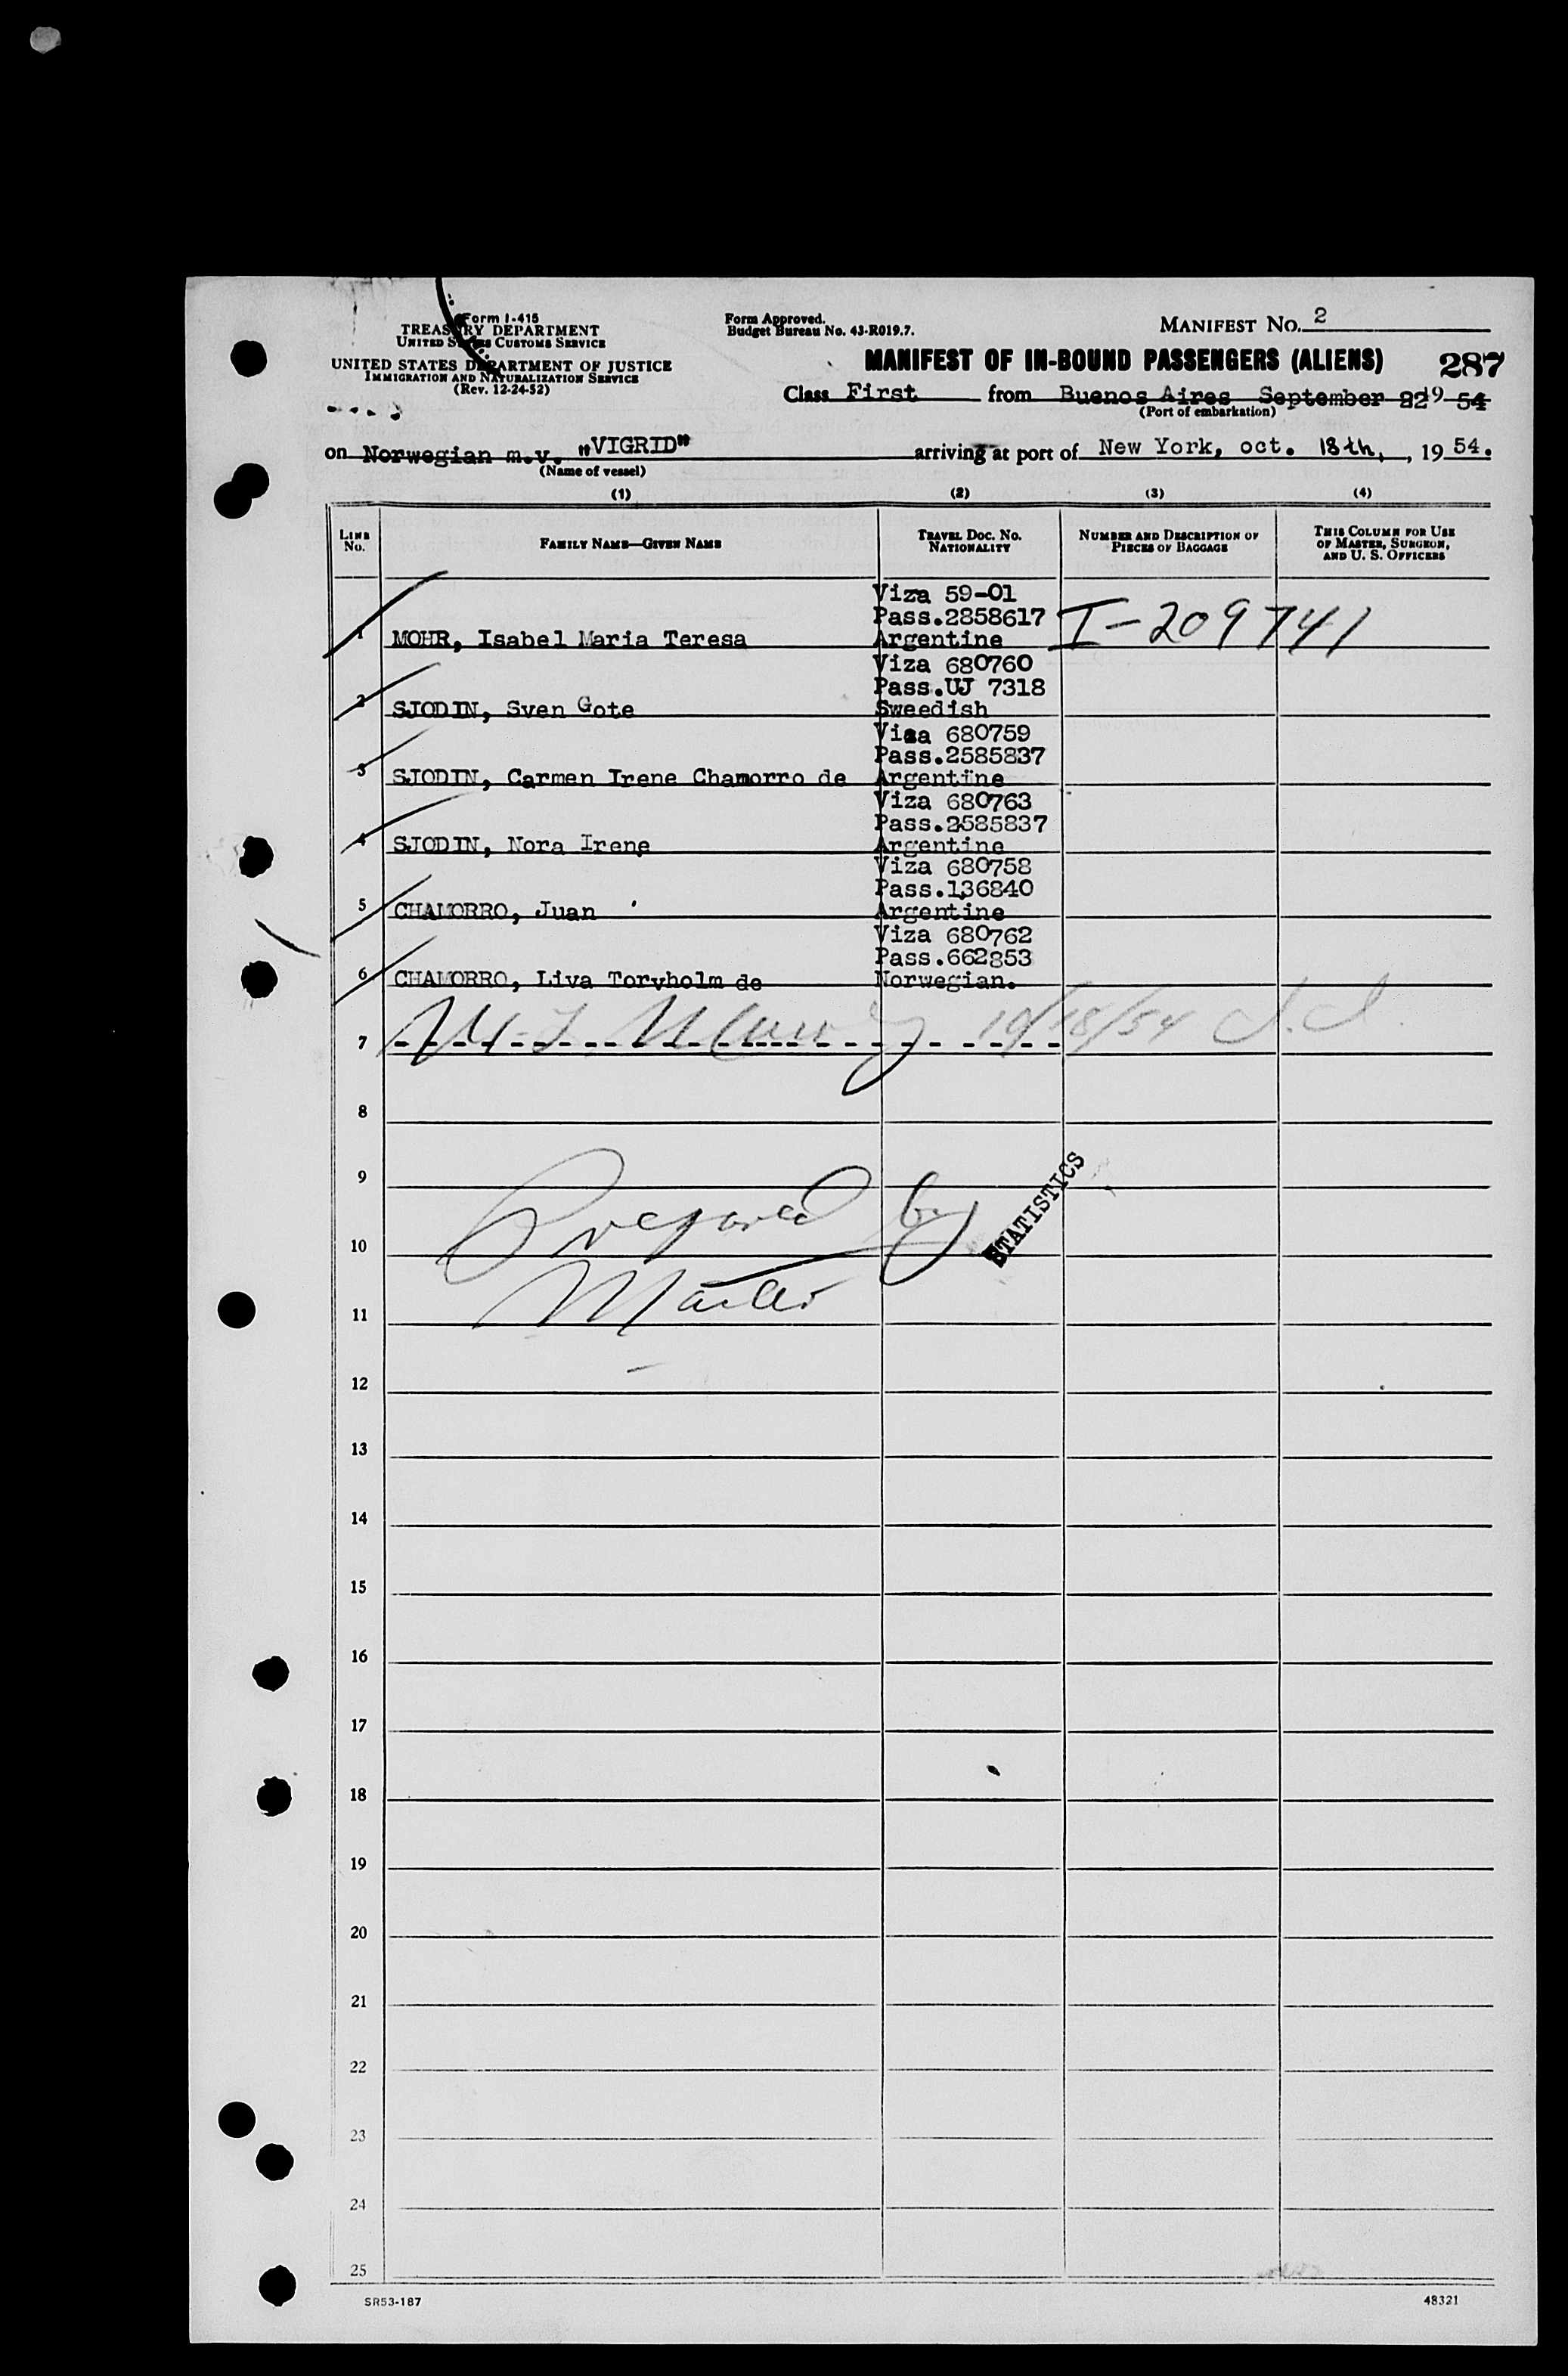 Form I-415
TREASURY DEPARTMENT
UNITED STATES CUSTOMS SERVICE
UNITED STATES DEPARTMENT OF JUSTICE
IMMIGRATION AND NATURALIZATION SERVICE
(Rev. 12-24-52)
Form Approved.
Budget Bureau No. 43-R019.7.
MANIFEST NO. 2
MANIFEST OF IN-BOUND PASSENGERS (ALIENS) 287
Class First from Buenos Aires September 22 19 54
(Port of embarkation)
on Norwegian m.v. "VIGRID" arriving at port of New York, oct. 18th, , 19 54.
(Name of vessel)
(1) (2) (3) (4)
LINE NO. FAMILY NAME—GIVEN NAME TRAVEL DOC. NO. NATIONALITY NUMBER AND DESCRIPTION OF PIECES OF BAGGAGE THIS COLUMN FOR USE OF MASTER, SURGEON, AND U. S. OFFICERS
Viza 59-01
Pass.2858617 I-209741
1 MOHR, Isabel Maria Teresa Argentine
Viza 680760
Pass.UJ 7318
2 SJODIN, Sven Gote Sweedish
Visa 680759
Pass.2585837
3 SJODIN, Carmen Irene Chamorro de Argentine
Viza 680763
Pass.2585837
4 SJODIN, Nora Irene Argentine
Viza 680758
Pass.136840
5 CHAMORRO, Juan Argentine
Viza 680762
Pass.662853
6 CHAMORRO, Liva Toryholm de Norwegian.
7 10/18/54
8
9
STATISTICS
Prepared by
10
Master
11
12
13
14
15
16
17
18
19
20
21
22
23
24
25
SR53-187 48321